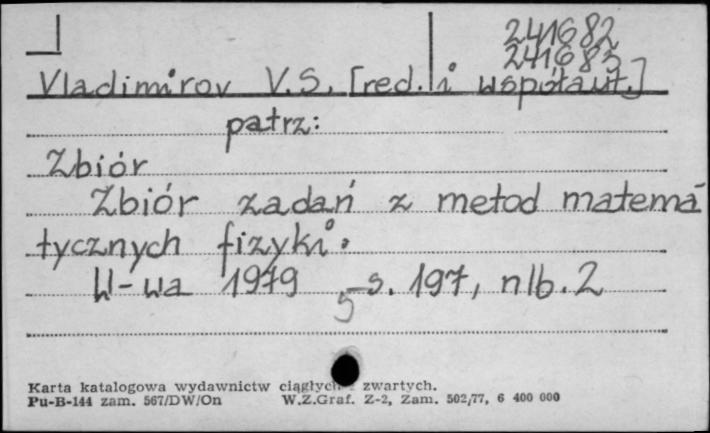 241682
241683
Vladimirov V.S. [red. i współaut.]
patrz:
Zbiór
Zbiór zadań z metod matema-
tycznych fizyki.
W-wa 1979 s. 197, nlb. 2
5
Karta katalogowa wydawnictw ciągłych i zwartych.
Pu-B-144 zam. 567/DW/On W.Z.Graf. Z-2, Zam. 502/77, 6 400 000